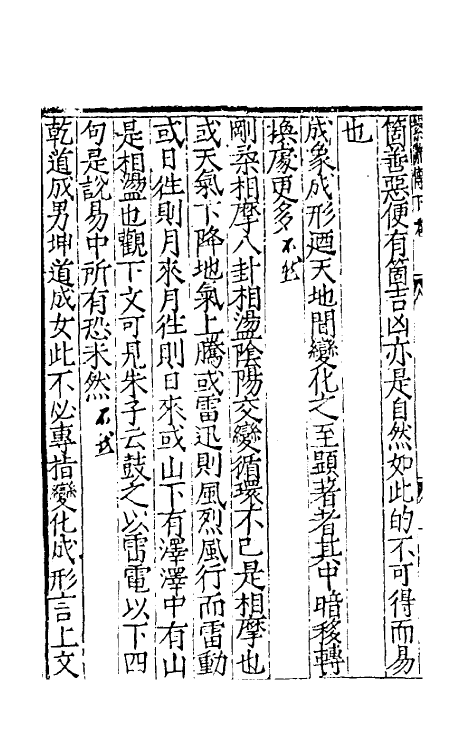 箇善惡便有箇吉凶亦是自然如此的不可得而易
也
成象成形迺天地間變化之至顯著者其中暗移轉
換處更多
剛柔相摩八卦相盪陰陽交變循環不已是相摩也
或天氣下降地氣上騰或雷迅則風烈風行而雷動
或日徃則月來月徃則日來或山下有澤澤中有山
是相盪也觀下文可見朱子云鼓之以雷電以下四
句是說易中所有恐未然
乾道成男坤道成女此不必專指變化成形言上文